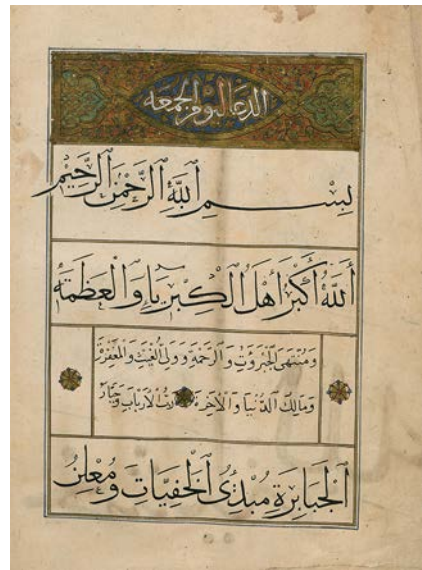 الدعا ليوم الجمعه
بِسْمِ اللَّهِ الرَّحْمَنِ الرَّحِيمِ
اَللّٰهُ أَكْبَرُ أَهْلَ الْكِبْرِيَاءِ وَالْعَظَمَةِ
وَمُنْتَهَى الْجَبَرُوْتِ وَالرَّحْمَةِ وَوَلِيَّ الْغَيْثِ وَالْمَغْفِرَةِ
وَمَالِكَ الدُّنْيَا وَالْآخِرَةِ الْأَرْبَابِ وَجَبَّارَ
الْجَبَابِرَةِ مُبْدِئُ الْخَفِيَّاتِ وَمُعْلِنُ